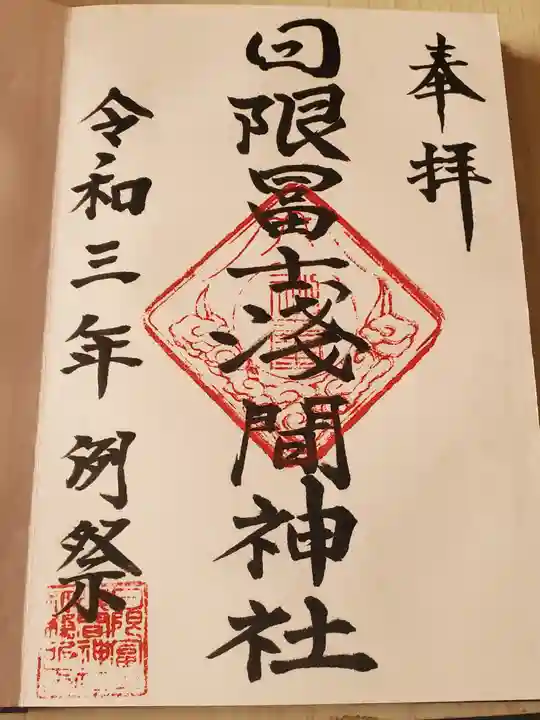 奉拝
日限冨士淺間神社
令和三年例祭